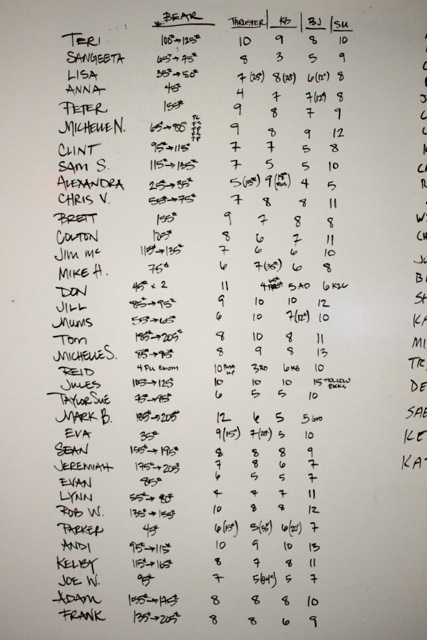 BEAR THRUSTER KB BJ SU
TERI 100#→125# 10 9 8 10
SANGEETA 65#→75# 8 3 5 9
LISA 35#→50# 7(25#) 8(25#) 6(12") 8
ANNA 45# 4 7 7(12") 8
PETER 155# 9 8 7 9
MICHELLE N. 65#→80# 9 8 9 12
CLINT 95#→115# 7 7 5 8
SAM S. 115#→135# 7 5 5 10
ALEXANDRA 25#→35# 5(15#) 9 4 5
CHRIS V. 55#→75# 7 8 8 11
BRETT 155# 9 7 8 8
COLTON 125# 8 6 7 11
JIM MC 115#→135# 7 6 6 10
MIKE H. 75# 6 7(35#) 6 8
DON 45# x 2 11 4 5 AD 6 K2C
JILL 85#→95# 9 10 10 12
MUMS 55#→65# 6 10 7(12") 10
TOM 185#→205# 8 10 8 11
MICHELLE S. 85#→95# 8 9 8 13
REID 4 PU 10 3 RD 6 KB 10
JULES 105#→125# 10 10 10 15 YELLOW
TAYLOR SUE 75#→95# 6 5 5 10
MARK B. 185#→205# 12 6 5 5
EVA 35# 9(15#) 7(25#) 5 10
SEAN 155#→195# 8 8 8 9
JEREMIAH 175#→205# 7 8 6 7
EVAN 85# 6 5 5 7
LYNN 55#→80# 7 7 11
ROB W. 135#→155# 10 8 8 12
PARKER 45# 6(15#) 5(35#) 6(25") 7
ANDI 95#→115# 10 9 10 13
KELBY 115#→165# 8 7 8 11
JOE W. 95# 7 5 5 7
ADAM 155#→175# 8 8 8 10
FRANK 135#→205# 8 8 6 9